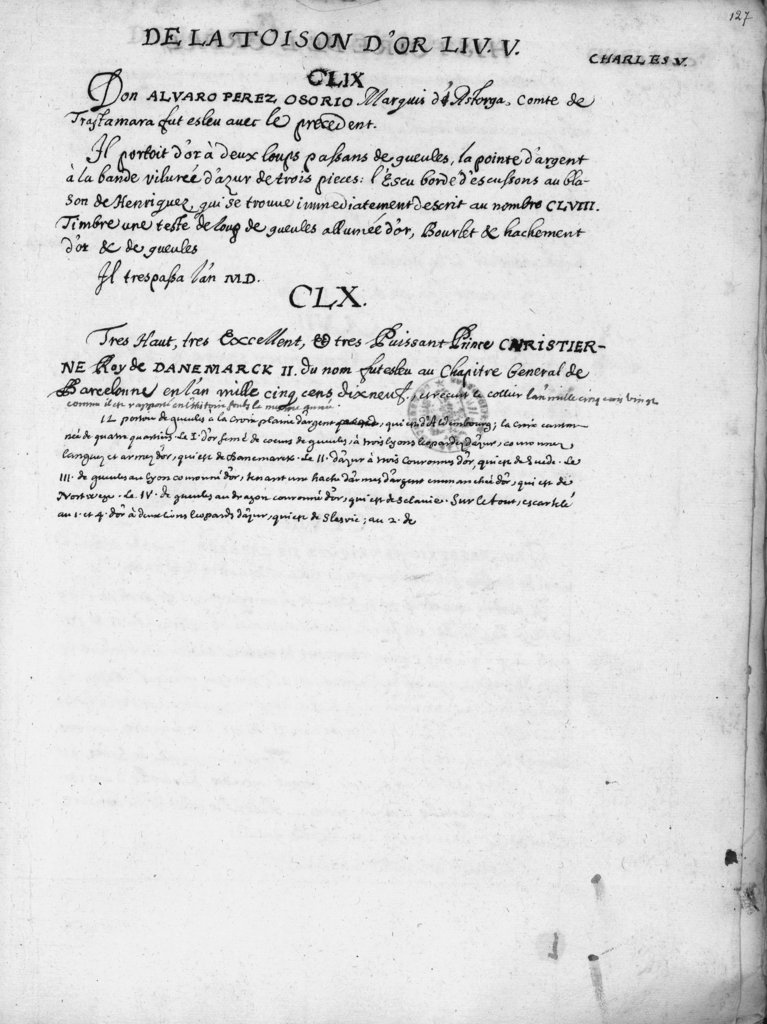 127
DE LA TOISON D'OR LIV. V.
CHARLES V.
CLIX
Don ALVARO PEREZ OSORIO Marquis d'Astorga, Comte de
Trastamara fut esleu avec le precedent.
Il portoit d'or à deux loups passans de gueules, la pointe d'argent
à la bande vilurée d'azur de trois pieces: l'Escu bordé d'escussons au bla-
son de Henriquez, qui se trouve immediatement descrit au nombre CLVIII.
Timbre une teste de loup de gueules allumée d'or, Bourlet & hachement
d'or & de gueules
Il trespassa l'an MD.
CLX.
Tres Haut, tres Excellent, & tres Puissant Prince CHRISTIER-
NE Roy de DANEMARCK II. du nom fut esleu au Chapitre General de
Barcelonne en l'an mille cinq cens dixneuf, et receut le collier l'an mille cinq cens vingt
comme il est rapporté en l'histoire soubs la mesme année.
IL portoit de gueules à la Croix plaine d'argent, qui est d'Aldembourg; la croix canton-
née de quatre quartiers. Le I. d'or semé de coeurs de gueules, à trois lyons leopardez d'azur, couronnez
languez et armez d'or, qui est de Danemarck. Le II. d'azur à trois couronnes d'or, qui est de Suede. Le
III. de gueules au lyon couronné d'or, tenant une hache d'armes d'argent emmanchée d'or, qui est de
Nortwege. Le IV. de gueules au dragon couronné d'or, qui est de Sclavie. Sur le tout, escartelé
au 1. et 4. d'or à deux lions leopards d'azur, qui est de Slesvic; au 2. de